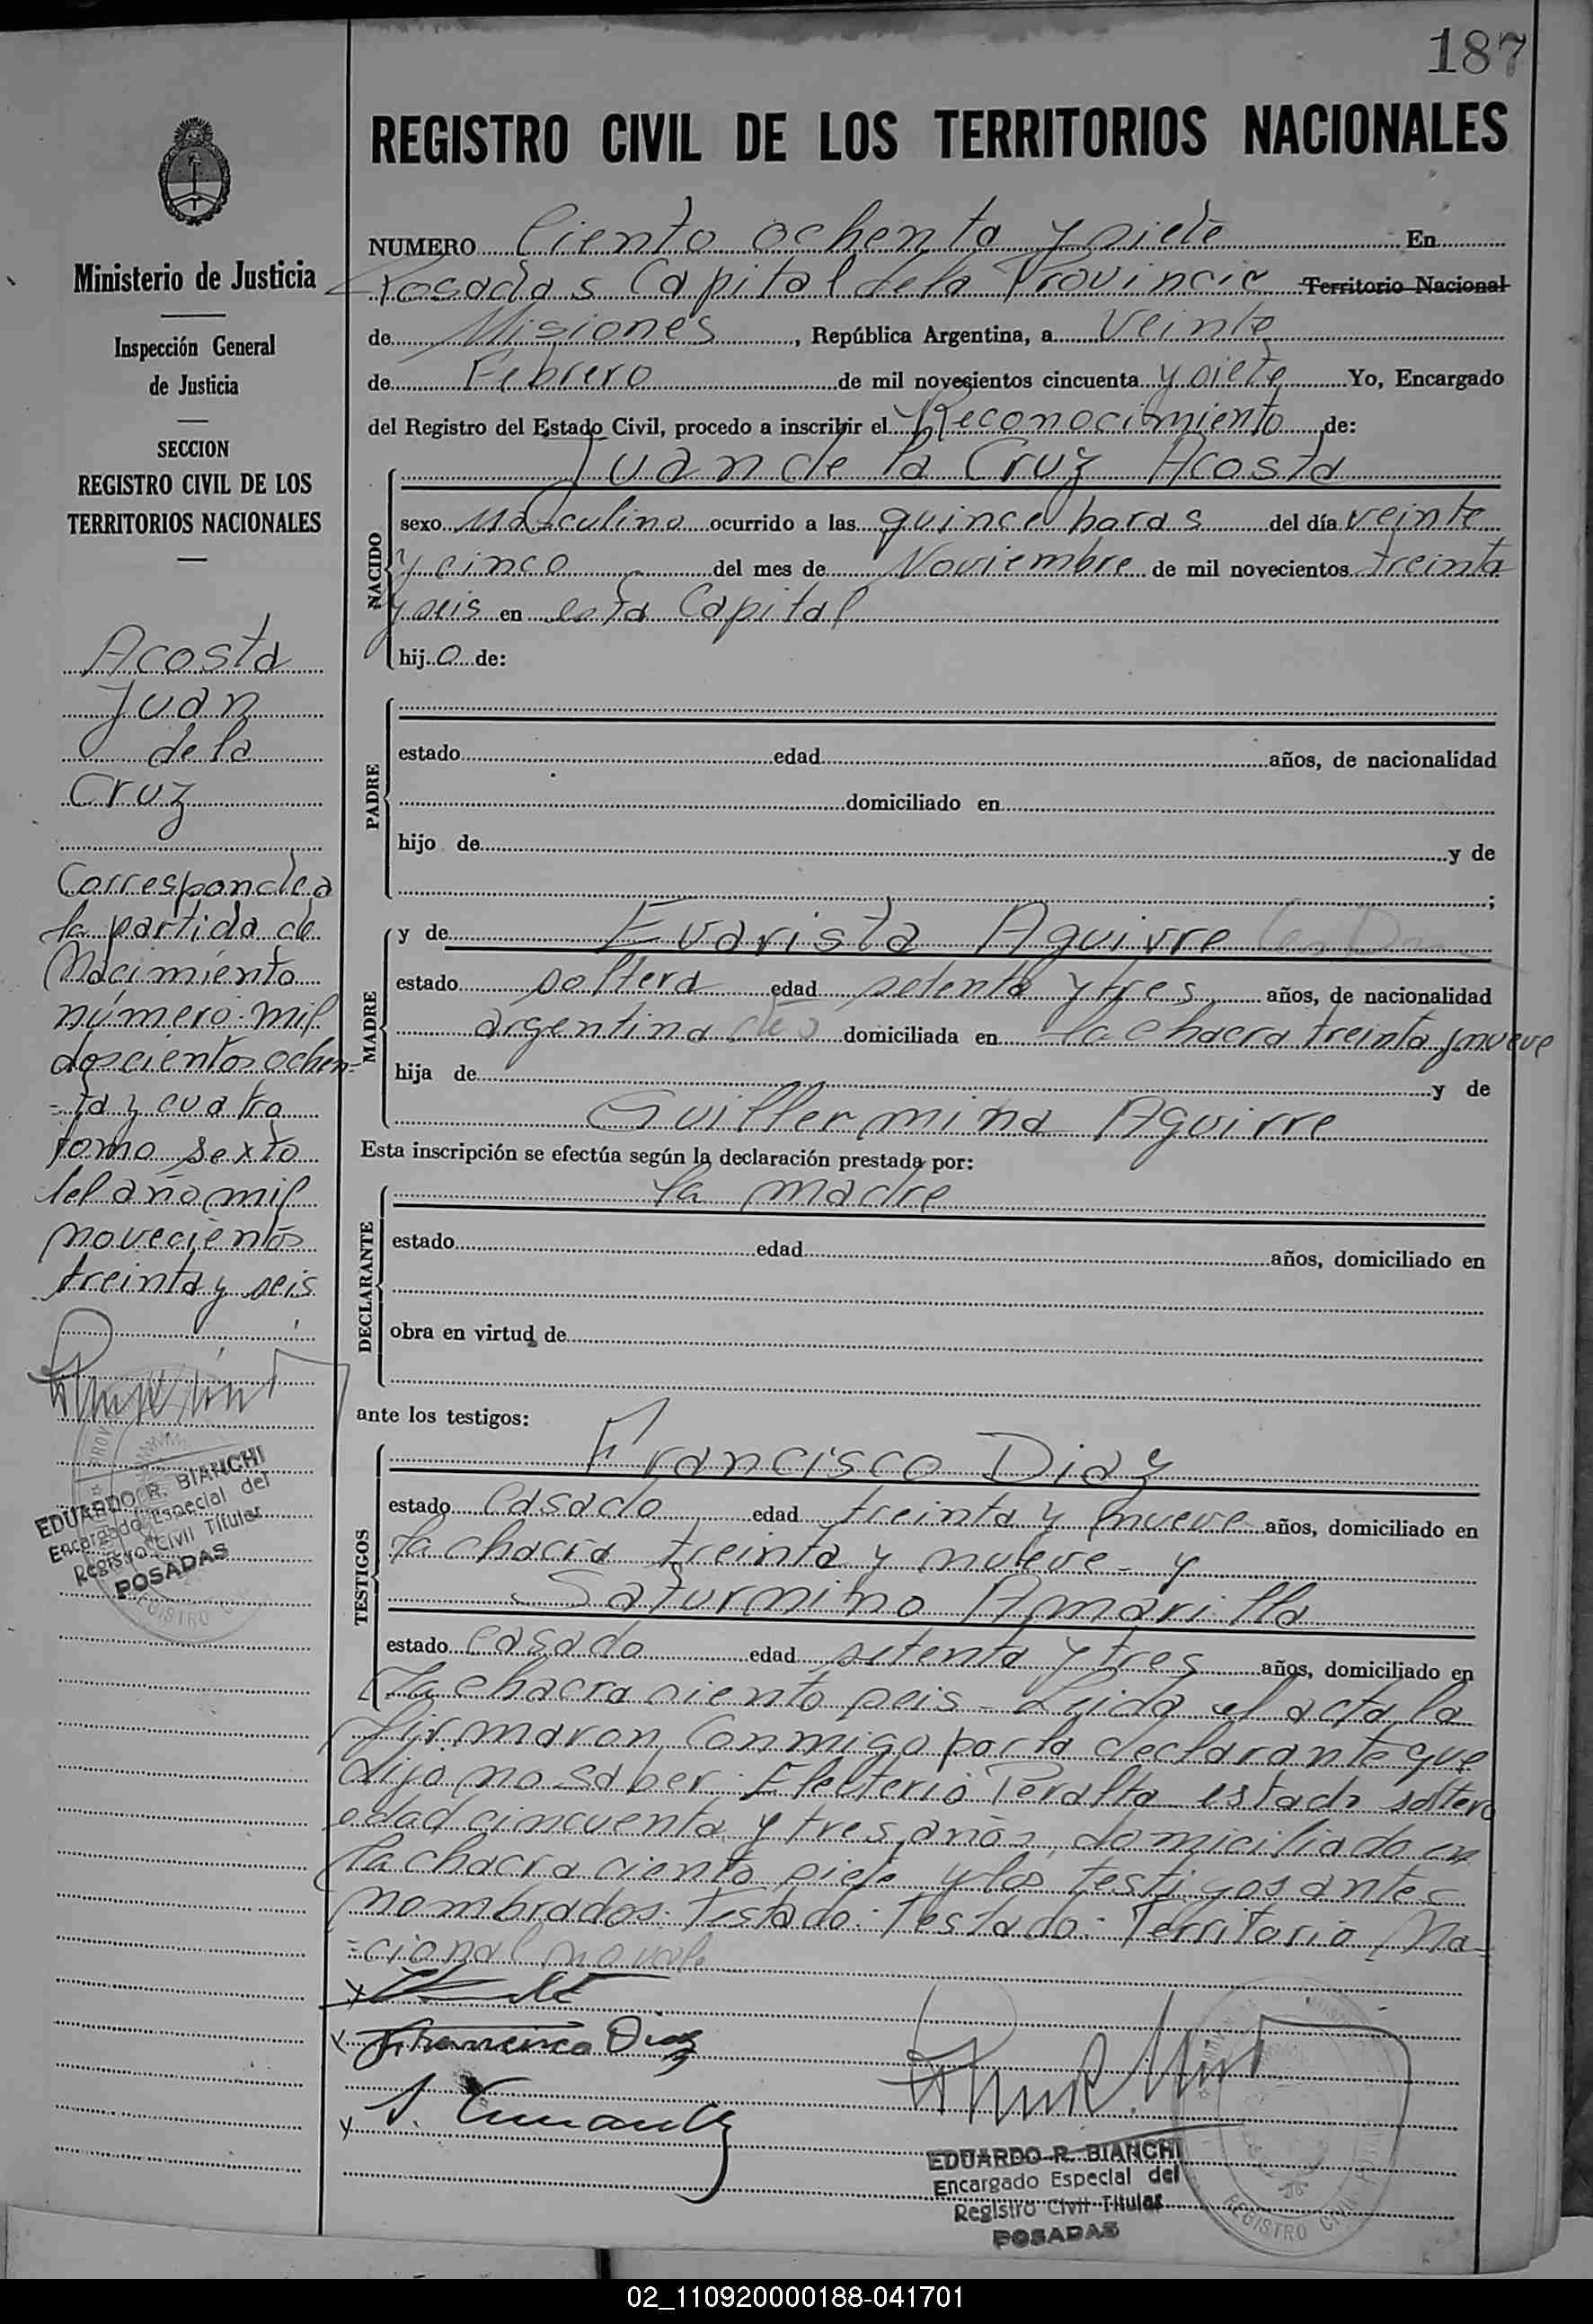 187
REGISTRO CIVIL DE LOS TERRITORIOS NACIONALES
NUMERO Ciento ochenta y siete En
Posadas Capital de la Provincia Territorio Nacional
de Misiones, República Argentina, a Veinte
de Febrero de mil novecientos cincuenta y siete Yo, Encargado
del Registro del Estado Civil, procedo a inscribir el Reconocimiento de:
Juan de la Cruz Acosta
NACIDO
sexo Masculino ocurrido a las quince horas del día veinte
y cinco del mes de Noviembre de mil novecientos treinta
y seis en esta Capital
hijo de:
PADRE
estado edad años, de nacionalidad
domiciliado en
hijo de y de
;
MADRE
y de Evarista Aguirre
estado soltera edad setenta y tres años, de nacionalidad
argentina domiciliada en la chacra treinta y nueve
hija de y de
Guillermina Aguirre
Esta inscripción se efectúa según la declaración prestada por:
DECLARANTE
la madre
estado edad años, domiciliado en
obra en virtud de
ante los testigos:
TESTIGOS
Francisco Diaz
estado casado edad treinta y nueve años, domiciliado en
la chacra treinta y nueve - y
Saturnino Amarilla
estado casado edad setenta y tres años, domiciliado en
la chacra ciento seis - Leida el acta la
firmaron conmigo por la declarante que
dijo no saber: Eleuterio Peralta estado soltero
edad cincuenta y tres años, domiciliado en
la chacra ciento siete y los testigos antes
nombrados. Testado: Testado: Territorio Na-
=cional no vale
Francisco Diaz
EDUARDO R. BIANCHI
Encargado Especial del
Registro Civil Titular
POSADAS
REGISTRO
Ministerio de Justicia
Inspección General
de Justicia
SECCION
REGISTRO CIVIL DE LOS
TERRITORIOS NACIONALES
Acosta
Juan
de la
Cruz
Corresponde a
la partida de
Nacimiento
número mil
doscientos ochen-
=ta y cuatro
tomo sexto
del año mil
novecientos
treinta y seis
EDUARDO R. BIANCHI
Encargado Especial del
Registro Civil Titular
POSADAS
REGISTRO
02_110920000188-041701